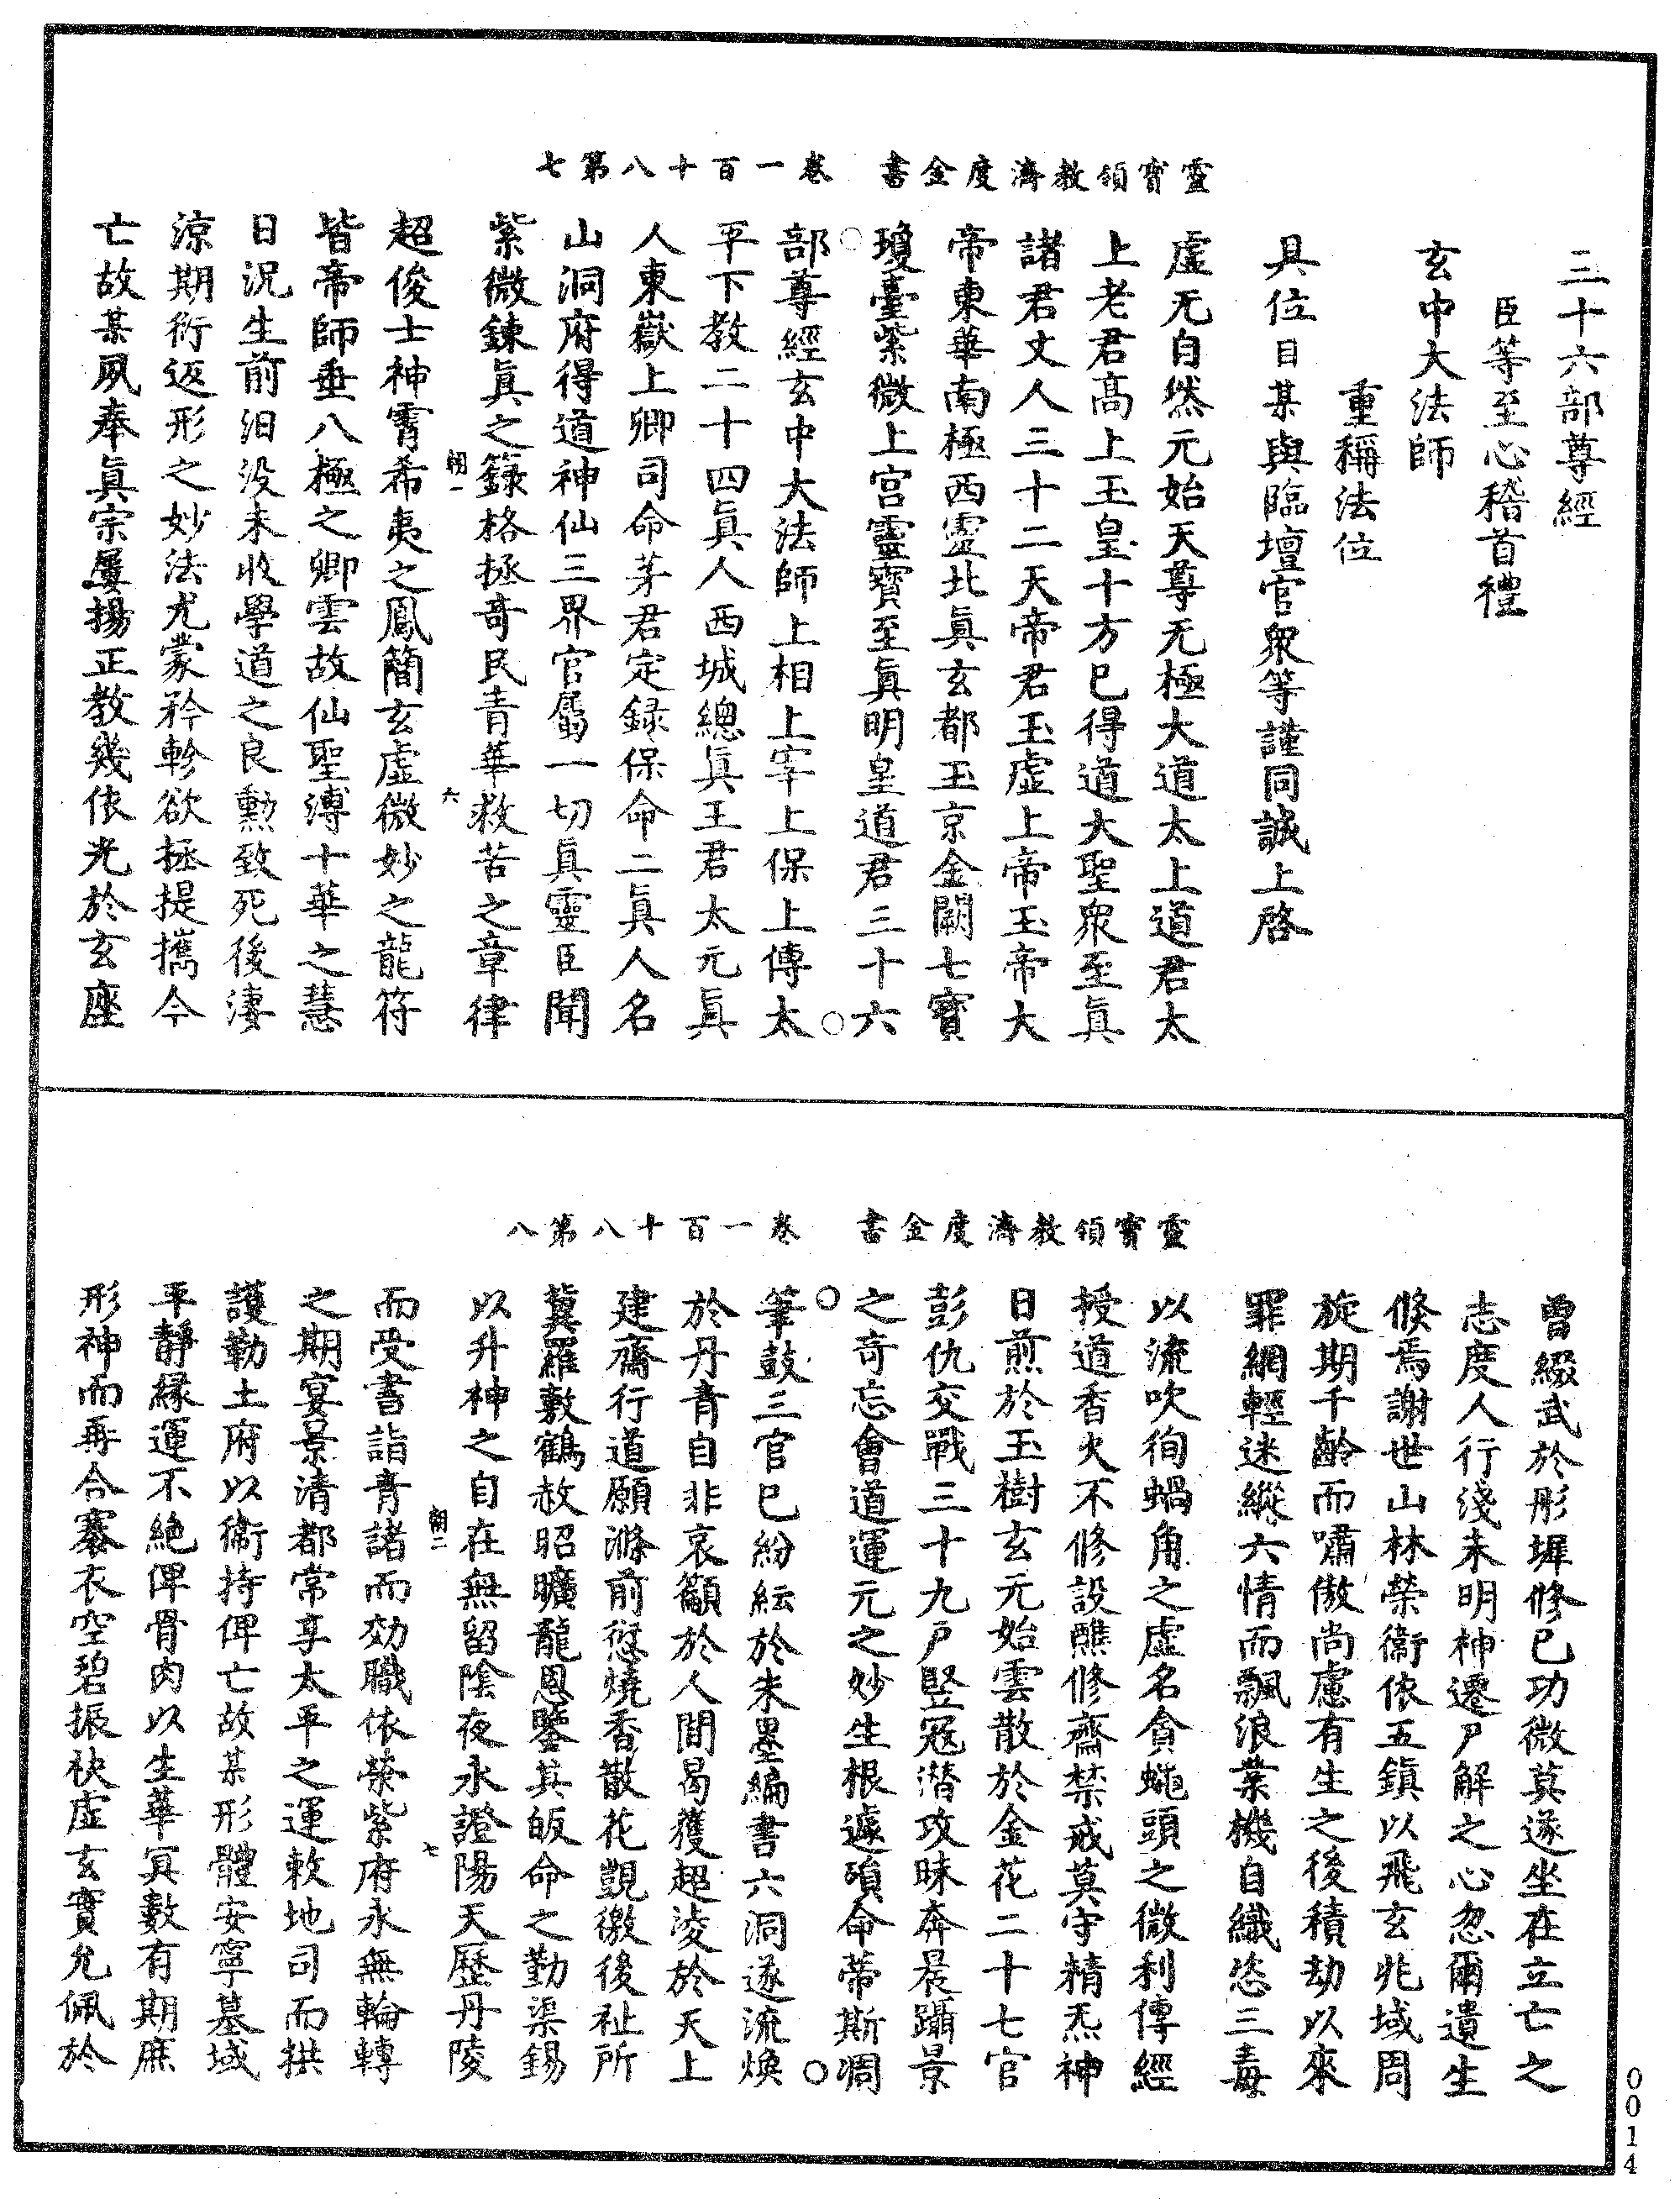 靈寶領教濟度金書　卷一百十八第七
三十六部尊經
臣等至心稽首禮
玄中大法師
重稱法位
具位臣某與臨壇官衆等謹同誠上啓
虛无自然元始天尊无極大道太上道君太
上老君髙上玉皇十方巳得道大聖衆至眞
諸君丈人三十二天帝君玉虛上帝玉帝大
帝東華南極西靈北眞玄都玉京金闕七寳
瓊臺紫微上宮靈寳至眞明皇道君三十六
部尊經玄中大法師上相上宰上保上傳太
平下教二十四眞人西城總眞王君太元眞
人東嶽上卿司命茅君定録保命二眞人名
山洞府得道神仙三界官屬一切眞靈臣聞
紫微鍊眞之籙格拯哥民青華救苦之章律
朝一　六
超俊士神霄希夷之鳳簡玄虛微妙之龍符
皆帝師垂八極之卿雲故仙聖溥十華之慧
日況生前汨没未收學道之良勲致死後淒
涼期衍返形之妙法尤蒙矜軫欲拯提攜今
亡故某夙奉眞宗屢揚正教幾依光於玄座
靈寳領教濟度金書　卷一百十八第八
曾綴武於彤墀修巳功微莫遂坐在立亡之
志度人行淺未明神遷尸解之心忽爾遺生
倐焉謝世山林榮衞依五鎮以飛玄兆域周
旋期千齡而嘯傲尚慮有生之後積劫以來
罪網輕迷縱六情而飄浪業機自織恣三毒
以流吹徇蝸角之虛名貪蠅頭之微利傳經
授道香火不修設醮修齋禁戒莫守精炁神
日煎於玉樹玄元始雲散於金花二十七官
彭仇交戰三十九戸竪冦潛攻昧奔晨躡景
之奇忘會道運元之妙生根遽殞命蒂斯凋
筆鼓三官巳紛紜於朱墨編書六洞遂流煥
於丹青自非哀籲於人間曷獲超淩於天上
建齋行道願滌前愆燒香散花覬徼後祉所
冀羅敷鶴赦昭曠龍恩鑒其皈命之勤渠錫
以升神之自在無留隂夜永證陽天歷丹陵
朝二　七
而受書詣青諸而効職依榮紫府永無輪轉
之期宴景清都常享太平之運敕地司而拱
護勒土府以衞持俾亡故某形體安寧墓域
平靜緣運不絶俾骨肉以生華冥數有期庶
形神而再合褰衣空碧振袂虛玄實允佩於
0014